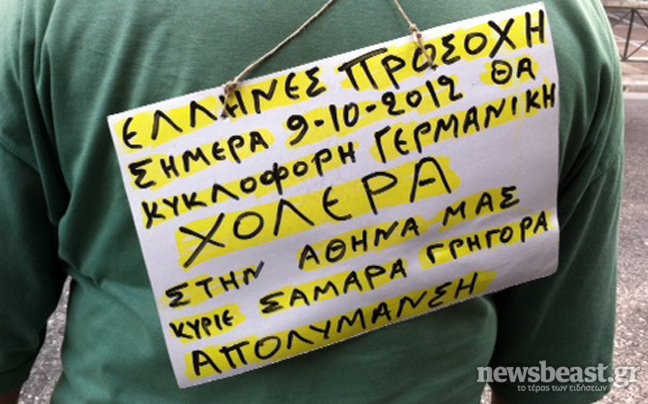 ΕΛΛΗΝΕΣ ΠΡΟΣΟΧΗ
ΣΗΜΕΡΑ 9-10-2012 ΘΑ
ΚΥΚΛΟΦΟΡΗ ΓΕΡΜΑΝΙΚΗ
ΧΟΛΕΡΑ
ΣΤΗΝ ΑΘΗΝΑ ΜΑΣ
ΚΥΡΙΕ ΣΑΜΑΡΑ ΓΡΗΓΟΡΑ
ΑΠΟΛΥΜΑΝΣΗ
newsbeast.gr
το τέρας των ειδήσεων